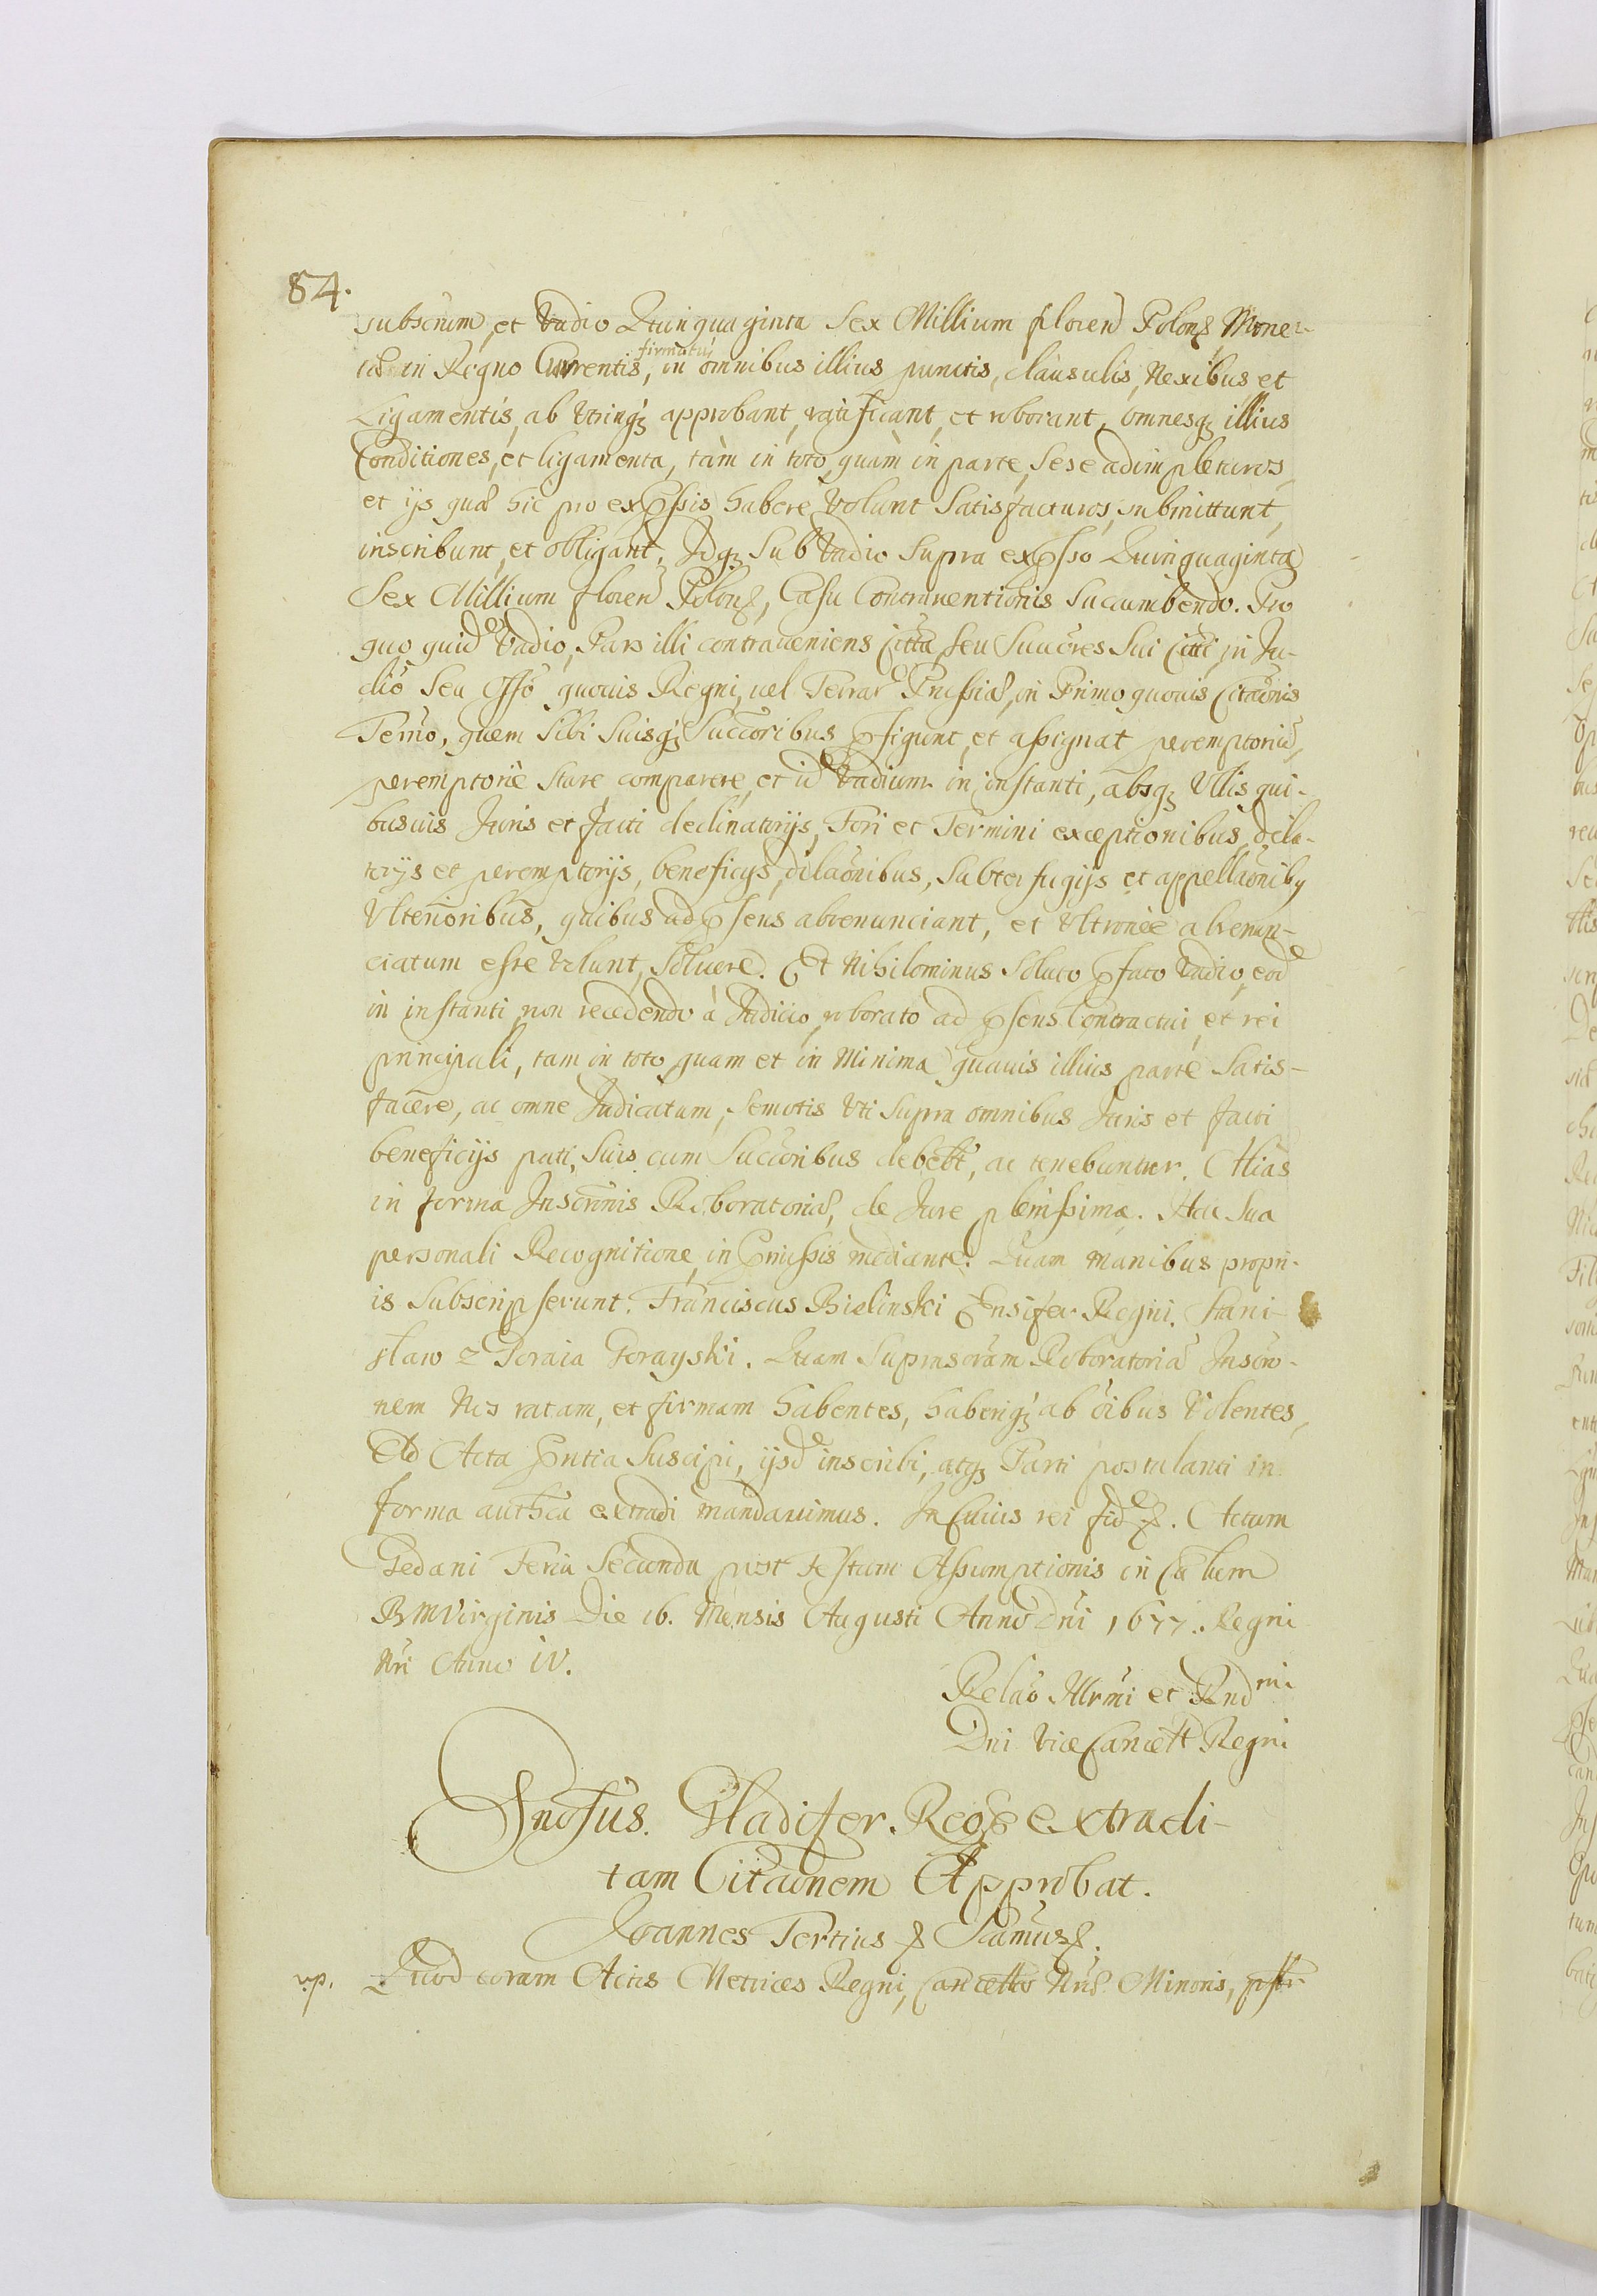 84.
subscrium, et Vadio Quinquaginta Sex Millium floren Polon Mone-
in Regno Currentis, firmatus in omnibus illius punctis, clausulis, Nexibus et
Ligamentis, ab Utrinq approbant, ratificant, et roborant, omnesq illius
Conditiones, et ligamenta, tàm in toto, quàm in parte, Sese adimpleturos,
et ijs quae hic pro expssis habere Volunt Satisfacturos, submittunt,
inscribunt, et obligant. Idq Sub Vadio Supra expsso Quinquaginta
Sex Millium floren Polon, Casu Contrauentionis Sucumbendo. Pro
quo quid Vadio, Pars illi contraueniens citta, seu Succores Sui citti, in Ju-
dio Seu Offo quouis Regni, uel Terrar Prussiae, in Primo quouis Citaonis
Termo, quem Sibi Suisq Succoribus pfigunt, et assignat peremptorie,
peremptoriè stare comparere, et id Vadium in instanti, absq Ullis qui-
busuis Juris et facti declinatorijs, Fori et Termini exceptionibus, dila-
torijs et peremptorijs, beneficijs, dilaonibus, Subterfugijs et appellaoniby
Ulterioribus, quibus ad psens abrenunciant, et Ultroneè abrenun-
ciatum esse Volunt, Soluere. Et Nihilominus Soluto pfato Vadio, eod
in instanti, non recedendo à Judicio, roborato ad psens Contractui, et rei
principali, tam in toto, quam et in Minima quauis illius parte Satis-
facere, ac omne Judicatum, Semotis Uti Supra omnibus Juris et facti
beneficijs pati, Suis cum Succoribus debebt, ac tenebuntur. Alias
in forma Inscronis Roboratoriae, de Jure plenissima. Hac Sua
personali Recognitione, in Pmissis mediante. Quam manibus propri-
is Subscripserunt. Franciscus Bielinski Ensifer Regni. Stani-
sław z Poraia Gorayski. Quam Suprascram Roboratoria Inscro-
nem Nos ratam, et firmam habentes, haberiq ab oibus Volentes,
Ad Acta Pntia Suscipi, ijsd inscribi, atq Parti postulanti in
forma authca extradi mandauimus. In Cuius rei fid. Actum
Gedani Feria Secunda post Festum Assumptionis in Caelum
BMVirginis Die 16. Mensis Augusti Anno Dni 1677. Regni
Nri Anno IV.
Relao Illrmi et Rnd mi
Dni ViceCancell Regni
Gnosus. Gladifer. Reg extradi-
tam Citaonem Approbat.
Joannes Tertius
np. Quod coram Actis Metrices Regni, Cancell Nrae Minoris,